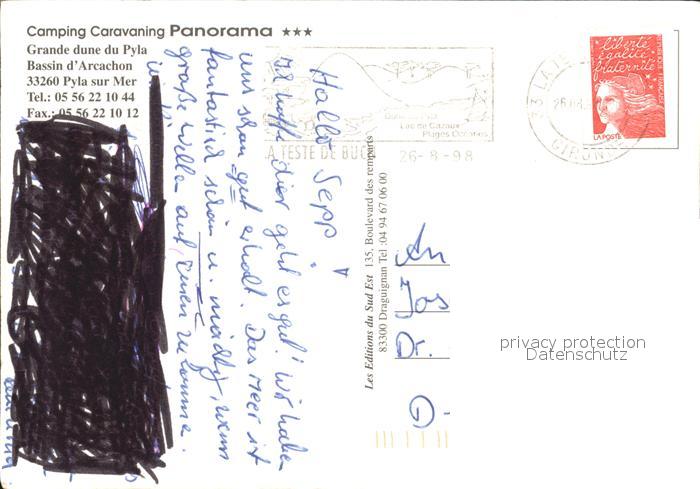 Camping Caravaning Panorama ★★★
Grande dune du Pyla
Bassin d'Arcachon
33260 Pyla sur Mer
Tel.: 05 56 22 10 44
Fax.: 05 56 22 10 12
Hallo Sepp!
Ich hoffe, dier geht es gut! Wir haben
uns schon gut erholt. Das Meer ist
fantastisch schön u. mächtig, wenn
große Wellen auf einen zu komme.
Lac de Cazaux
Plages Océanes
LA TESTE DE BUCH
26-8-98
33 LA TE
26.08.
GIRONDE
liberté
égalité
fraternité
LA POSTE
Les Editions du Sud Est 135, Boulevard des remparts
83300 Draguignan Tel :04 94 67 06 00
An
Jos
Dr.
G
privacy protection
Datenschutz